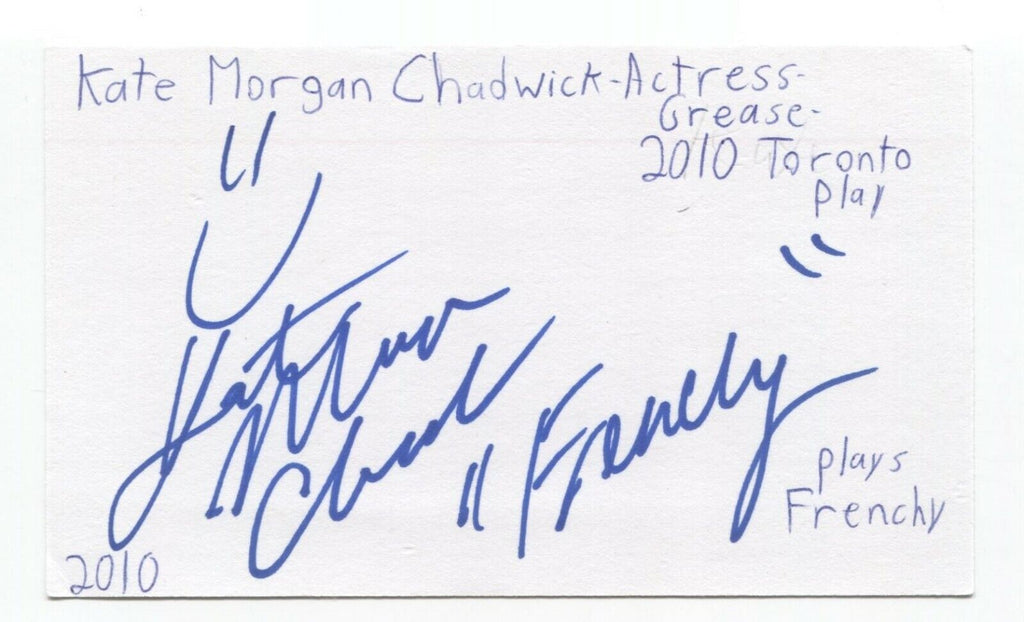 Kate Morgan Chadwick-Actress-
Grease-
2010 Toronto
play
Kate Morgan
Chadwick
"Frenchy"
plays
Frenchy
2010